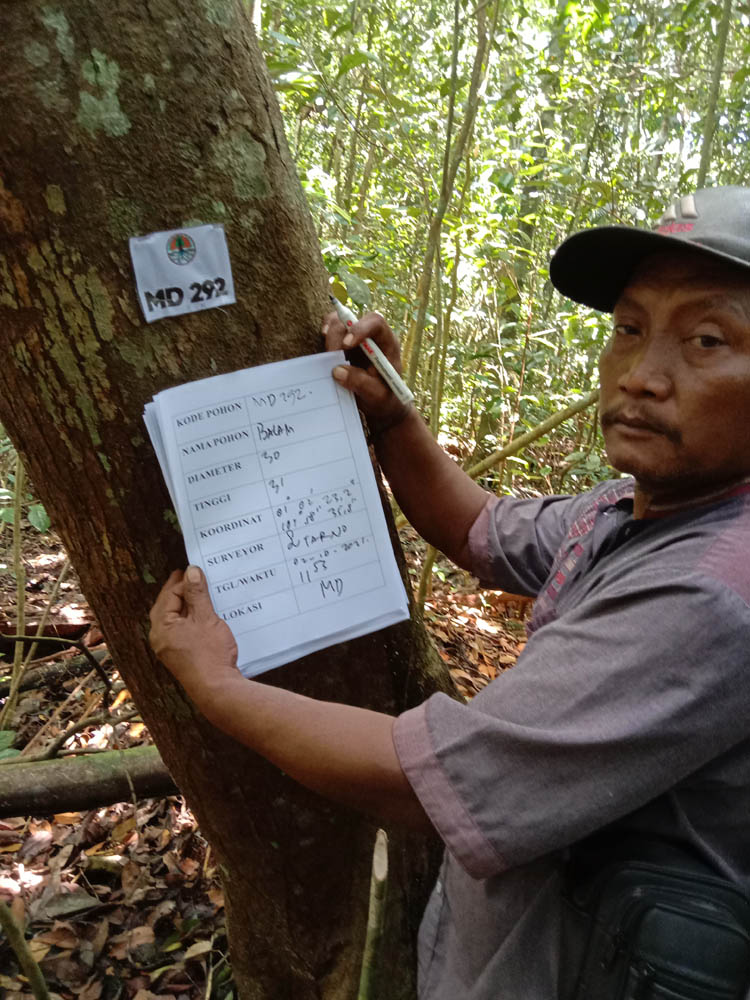 MD 292
KODE POHON MD 292.
NAMA POHON BALAM
DIAMETER 30
TINGGI 31
KOORDINAT 01° 02' 23.2"
101° 58' 35.8"
SURVEYOR SUTARNO
TGL/WAKTU 02-10-2021.
11 53
LOKASI MD